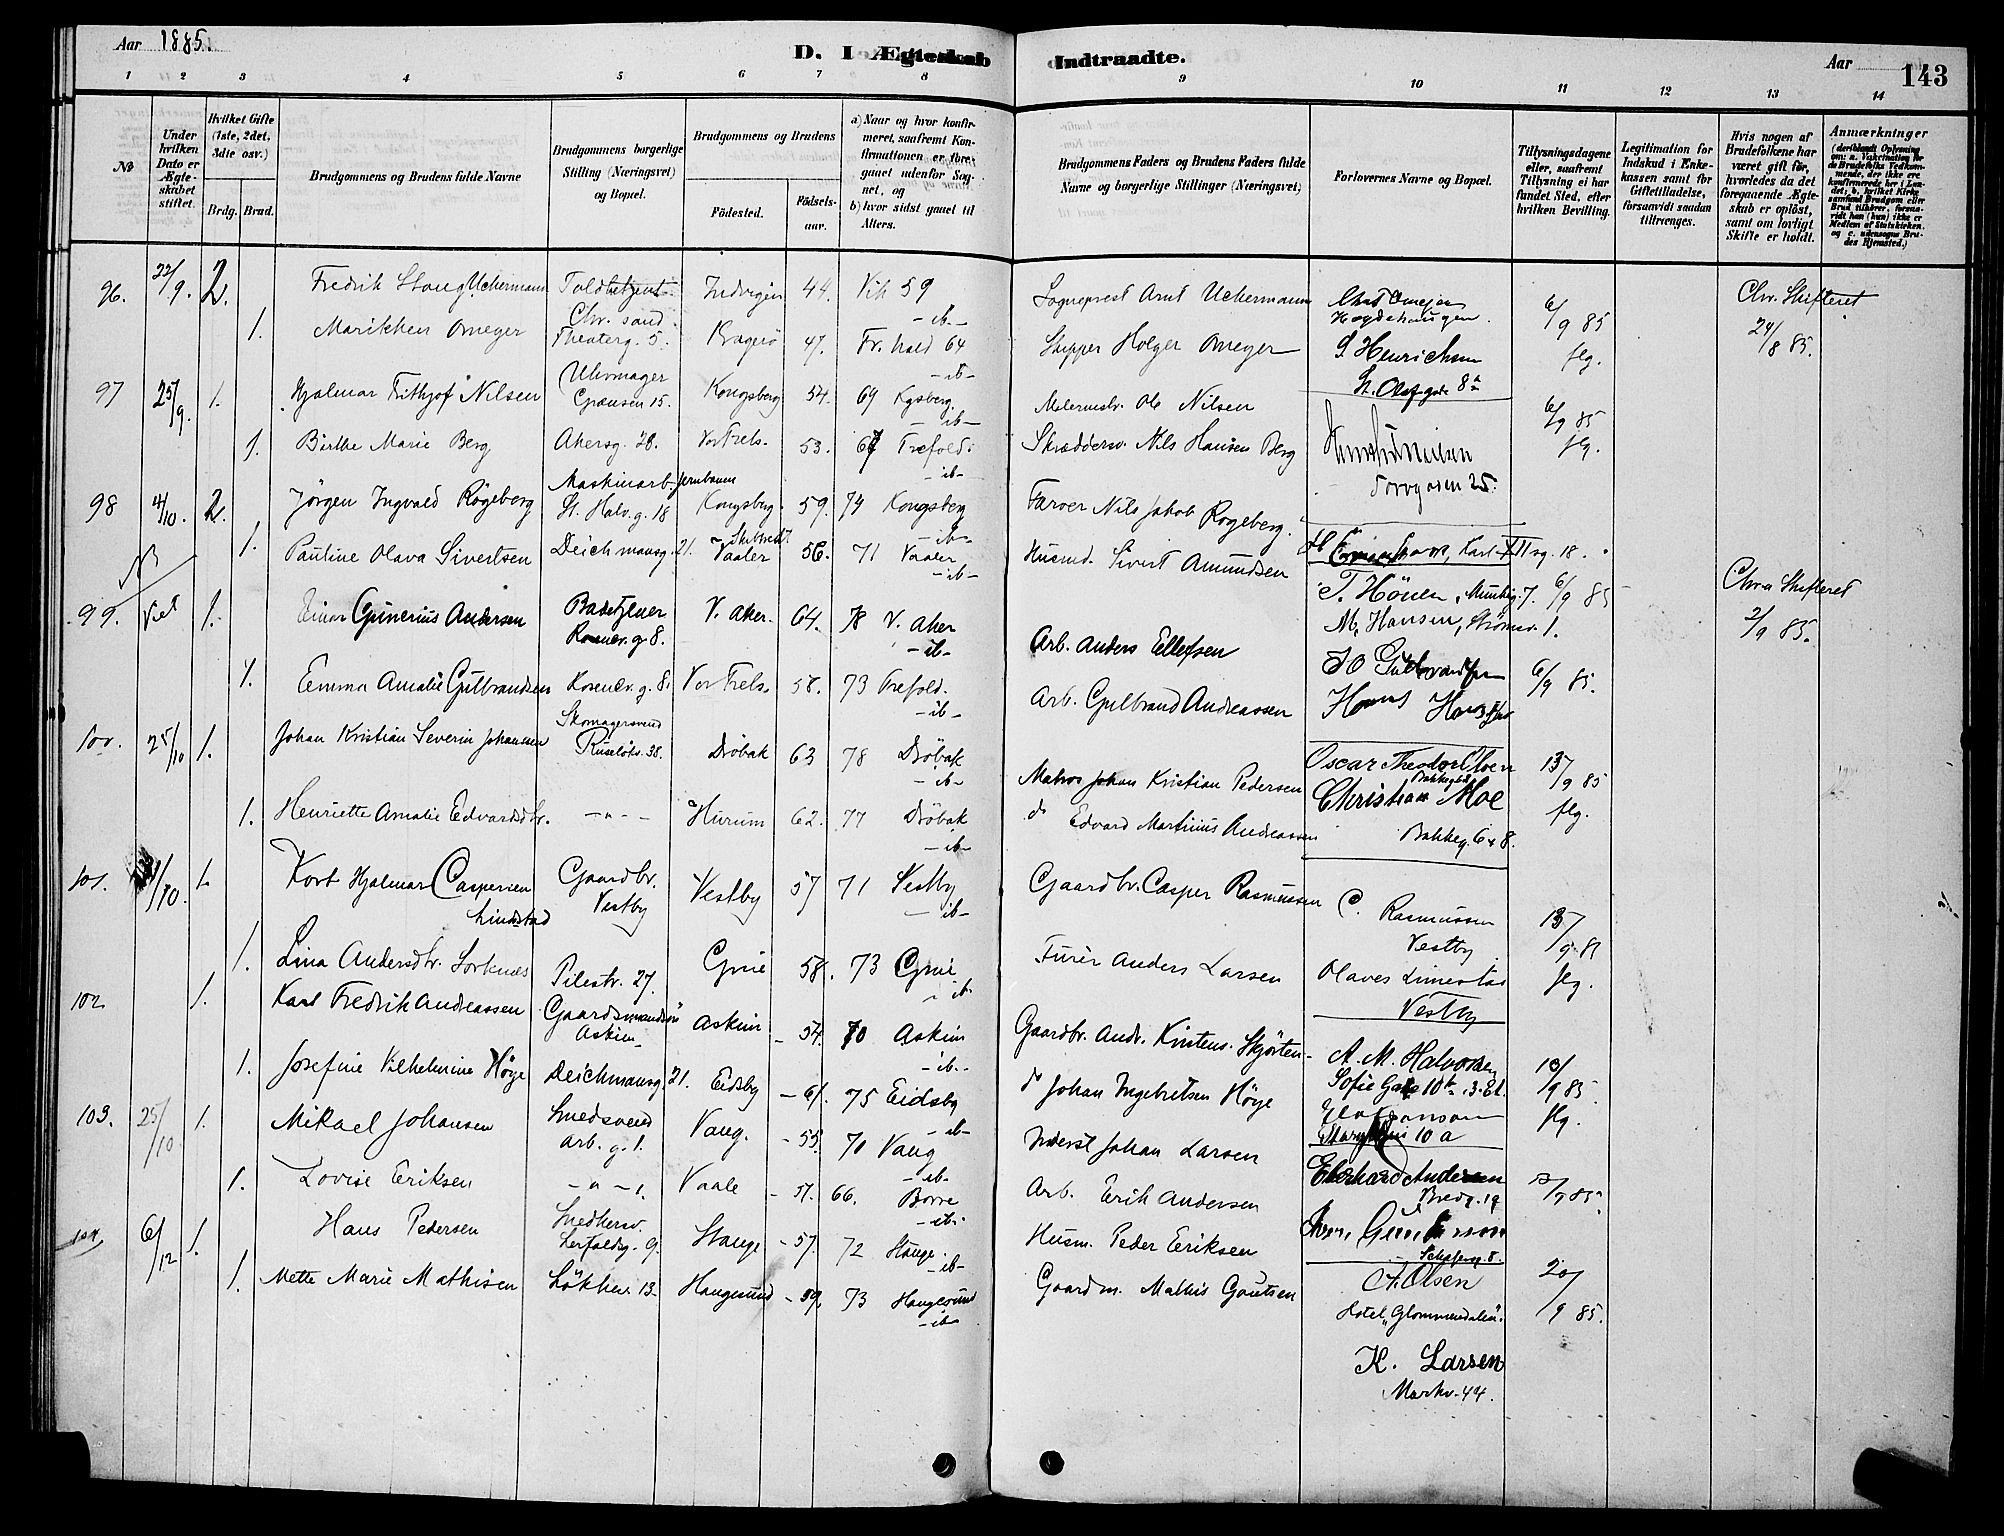 Aar 1885.
D. I Ægteskab Indtraadte.
Aar
143
1 2 3 4 5 6 7 8 9 10 11 12 13 14
№
Under hvilken Dato er Ægteskabet stiftet.
Hvilket Gifte (1ste, 2det, 3die osv.)
Brdg. Brud.
Brudgommens og Brudens fulde Navne
Brudgommens borgerlige Stilling (Næringsvei) og Bopæl.
Brudgommens og Brudens
Fødested.
Fødselsaar.
a) Naar og hvor konfirmeret, saafremt Konfirmationen er foregaaet udenfor Sognet, og
b) hvor sidst gaaet til Alters.
Brudgommens Faders og Brudens Faders fulde Navne og borgerlige Stillinger (Næringsvei)
Forlovernes Navne og Bopæl.
Tillysningsdagene eller, saafremt Tillysning ei har fundet Sted, efter hvilken Bevilling.
Legitimation for Indskud i Enkekassen samt for Giftetilladelse, forsaavidt saadan tiltrænges.
Hvis nogen af Brudefolkene har været gift før, hvorledes da det foregaaende Ægteskab er opløst, samt om lovligt Skifte er holdt.
Anmærkninger (deriblandt Oplysning om: a. Vakcination for de Brudefolks Vedkommende, der ikke ere konfirmerede her i Landet; b. hvilket Kirkesamfund Brudgom eller Brud tilhører, forsaavidt han (hun) ikke er Medlem af Statskirken. og c. udensogns Brudes Hjemsted.)
96. 22/9. 2. Fredrik Stang Uchermann Toldbetjent Chr. sand. 44. Vik 59 -ib- Sogneprest Arnt Uchermann 6/9 85 flg. Chr. Skifteret 24/8 85.
1. Marikken Omeyer Theaterg. 5. Kragerö 47. Fr. hald 64 -ib- Skipper Holger Omeyer S. Henrichsen St. Olafsgade 8a
97 25/9. 1. Hjalmar Frithjof Nilsen Uhrmager Grænsen 15. Kongsberg 54. 69 Kgsberg. -ib- Malermstr. Ole Nilsen 6/9 85 flg.
1. Birthe Marie Berg Akersg. 28. Vor Frels. 53. 67 Trefold: -ib- Skræddersv. Nils Hansen Berg Torvgaden 25.
98 4/10. 2. Jörgen Ingvald Rogeberg Maskinarb. Jernbanen St. Halv. g. 18 Kongsberg 59. 74 Kongsberg -ib- Farver Nils Jakob Rogeberg. Karl XII sg. 18.
1. Pauline Olava Sivertsen Deichmansg. 21. Vaaler 56. 71 Vaaler -ib- Husmd. Sivert Amundsen T. Hönen, Munkeg. 7. 6/9 85 Chra Skifteret 2/9 85.
99. 1. Einar Gunerius Andersen Badetjener Rosenkr. g. 8. V. Aker. 64. 78 V. Aker -ib- Arb. Anders Ellefsen M. Hansen, Strömsv. 1.
1. Emma Amalie Gulbrandsen Rosenkr. g. 8. Vor Frels. 58. 73 Trefold. -ib- Arb. Gulbrand Andreassen 6/9 85.
100. 25/10 1. Johan Kristian Severin Johansen Skomagersvend Ruselökv. 38. Dröbak 63 78 Dröbak -ib- Matros Johan Kristian Pedersen Oscar Theodor Olsen 13/9 85 flg.
1. Henriette Amalie Edvardsdtr. -"- Hurum 62. 77 Dröbak -ib- do Edvard Martinius Andreassen Christian Moe Bakkeg. 6 & 8.
101. /10. 1. Kort Hjalmar Caspersen Lindstad Gaardbr. Vestby Vestby 57 71 Vestby -ib- Gaardbr. Casper Rasmussen C. Rasmussen Vestby 13/9 85 flg.
1. Lina Andersdtr. Sorknes Pilestr. 27. Grue 58. 73 Grue -ib- Furer Anders Larsen Olaves Vestby
102 1. Karl Fredrik Andreassen Gaardmandssön Askim Askim 54. 70 Askim -ib- Gaardbr. Andr. Kristens. Skjörten A. M. Halvorsen Sofie Gade 10b 3. Et. /9 85 flg.
1. Josefine Vilhelmine Höye Deichmansg. 21. Eidsbg 61. 75 Eidsbg -ib- do Johan Ingebretsen Höye 10 a
103. 25/10 1. Mikael Johansen Smedsvend arb. g. 1. Vang. 55. 70 Vang -ib- Inderst Johan Larsen Eberhard Andersen Bredg. 19 /9 85
1. Lovise Eriksen -"- Vaale 51. 66. Borre -ib- Arb. Erik Andersen
104 6/12 1. Hans Pedersen Snedkersv. Lerfaldsg. 9. Stange 57. 72 Stange. -ib- Husm. Peder Eriksen A. Olsen Hotel "Glommendalen". 20/9 85.
1. Mette Marie Mathisen Lökkev. 13. Haugesund 59. 73 Haugesund -ib- Gaardm. Mathis Goutsen K. Larsen Markv. 44.